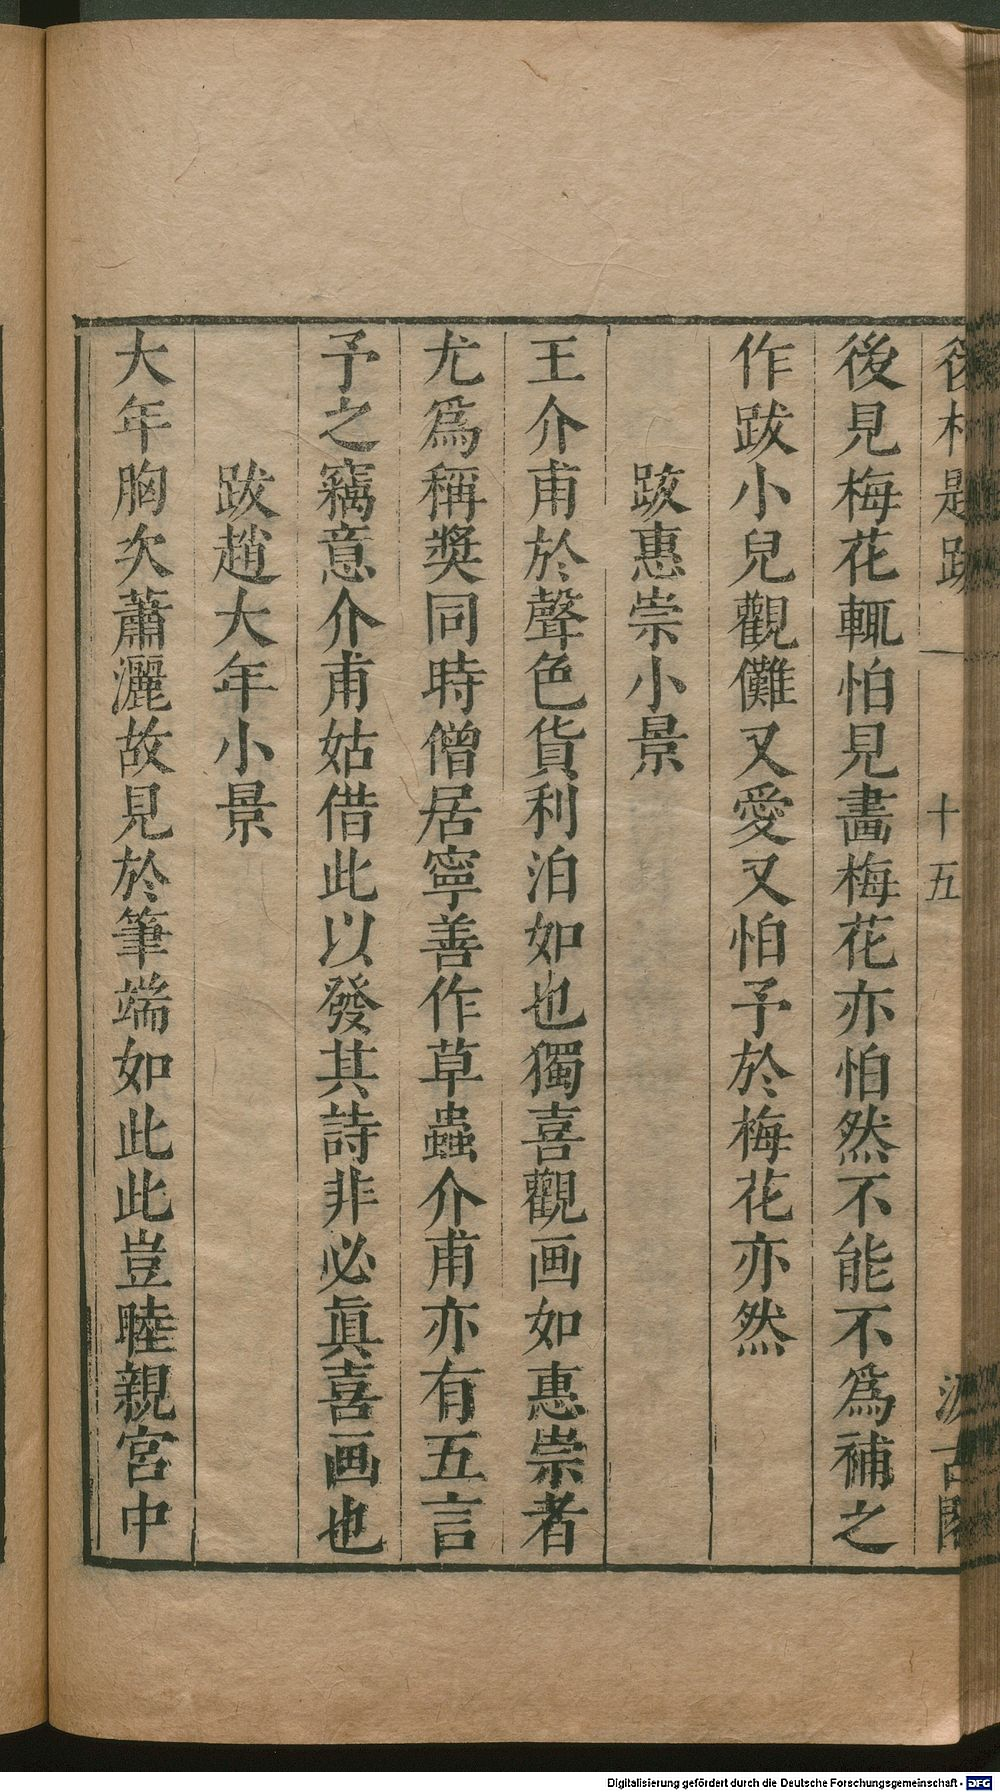 後村題跋 一 十五 汲古閣
後見梅花輒怕見畵梅花亦怕然不能不爲補之
作跋小兒觀儺又愛又怕予於梅花亦然
跋惠崇小景
王介甫於聲色貨利泊如也獨喜觀画如惠崇者
尤爲稱奬同時僧居寧善作草蟲介甫亦有五言
予之竊意介甫姑借此以發其詩非必眞喜画也
跋趙大年小景
大年胸次蕭灑故見於筆端如此此豈睦親宮中
Digitalisierung gefördert durch die Deutsche Forschungsgemeinschaft - DFG